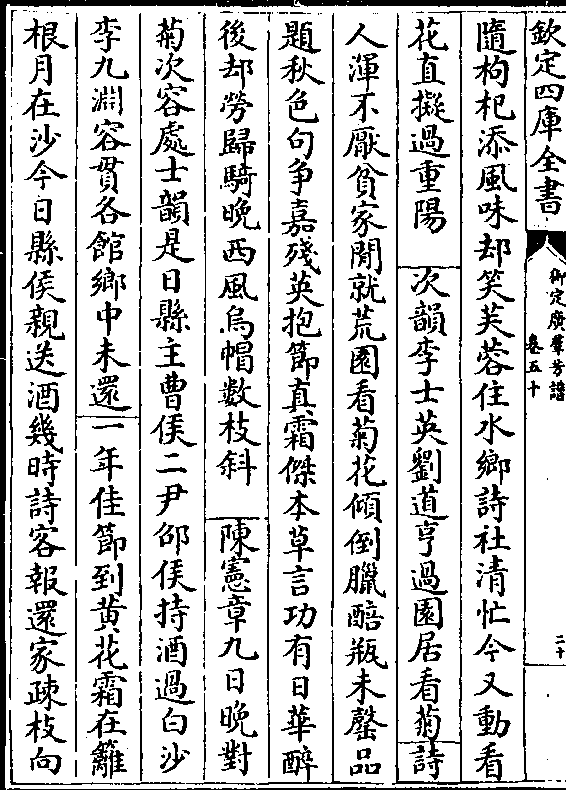 欽定四庫全書
御定廣羣芳譜
卷五十
二十
隨枸杞添風味却笑芙蓉住水鄉詩社清忙今又動看
花直擬過重陽　次韻李士英劉道亨過園居看菊詩
人渾不厭貧家閙就荒園看菊花傾倒臘醅瓶未罄品
題秋色句争嘉殘英抱節真霜傑本草言功有日華醉
後却勞歸騎晚西風烏帽數枝斜　陳憲章九日晚對
菊次容處士韻是日縣主曹侯二尹邵侯持酒過白沙
李九淵容貫各館鄉中未還一年佳節到黄花霜在籬
根月在沙今日縣侯親送酒幾時詩客報還家疎枝向